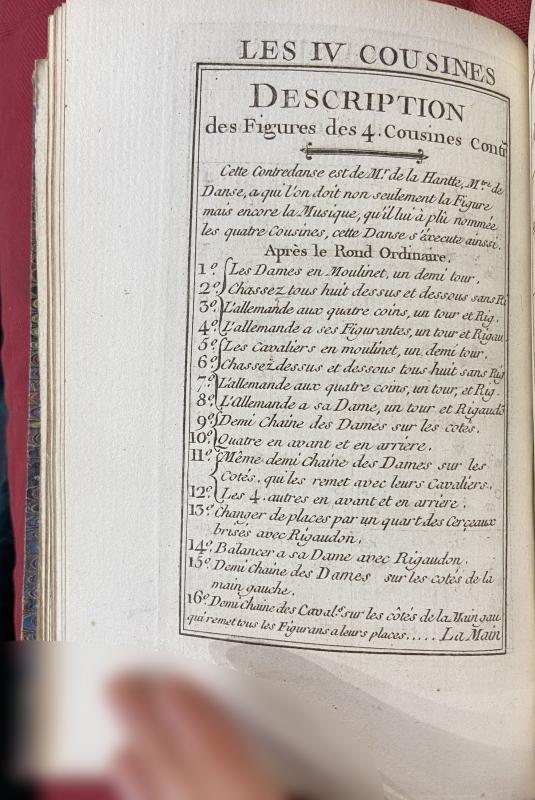 LES IV COUSINES
DESCRIPTION
des Figures des 4. Cousines Contr
Cette Contredanse est de Mr. de la Hantte, Mtre de
Danse, a qui l'on doit non seulement la Figure
mais encore la Musique, qu'il lui à plû nommée
les quatre Cousines, cette Danse s'éxecute ainssi.
Après le Rond Ordinaire.
1º. Les Dames en Moulinet, un demi tour.
2º. Chassez tous huit dessus et dessous sans Ri
3º. L'allemande aux quatre coins, un tour et Rig.
4º. L'allemande a ses Figurantes, un tour et Rigau
5º. Les Cavaliers en moulinet, un demi tour.
6º. Chassez dessus et dessous tous huit sans Rig
7º. L'allemande aux quatre coins, un tour, et Rig.
8º. L'allemande a sa Dame, un tour et Rigaudo
9º. Demi Chaine des Dames sur les cotés.
10º. Quatre en avant et en arriere.
11º. Même demi Chaine des Dames sur les
Cotés, qui les remet avec leurs Cavaliers.
12º. Les 4. autres en avant et en arriere.
13º. Changer de places par un quart des Cerceaux
brisés avec Rigaudon.
14º. Balancer a sa Dame avec Rigaudon.
15º. Demi Chaine des Dames sur les cotés de la
main gauche.
16º. Demi Chaine des Caval.rs sur les côtés de la Main gau
qui remet tous les Figurans a leurs places..... La Main